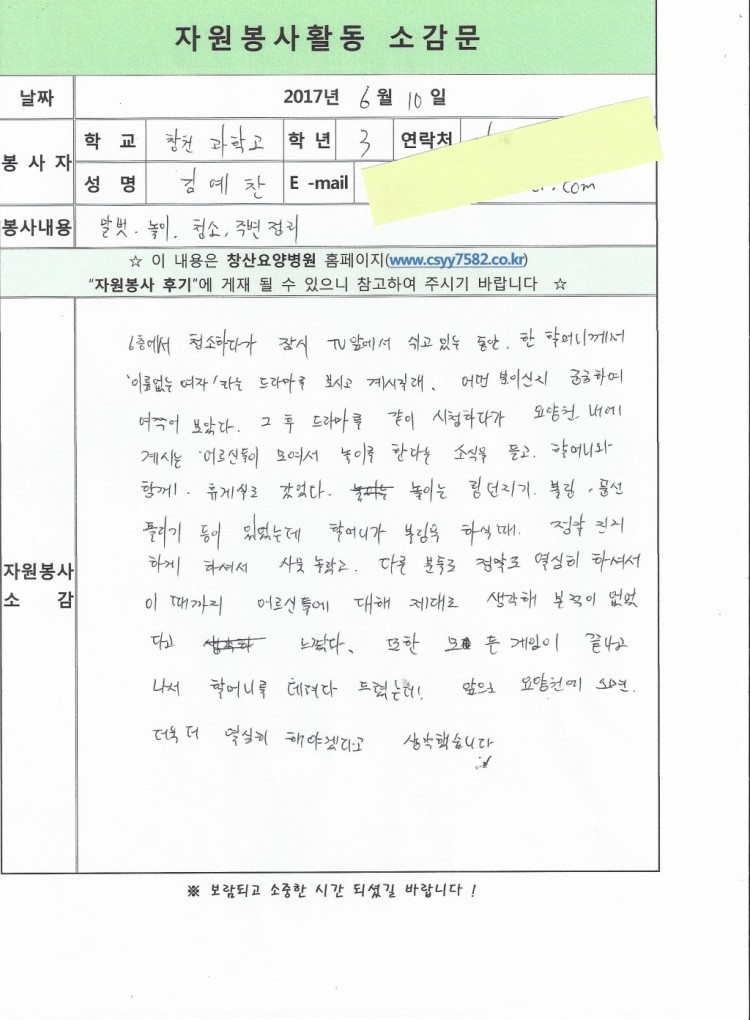 자원봉사활동 소감문
날짜 2017년 6월 10일
봉사자 학 교 창원 과학고 학 년 3 연락처
성 명 김예찬 E -mail .com
봉사내용 말벗. 놀이. 청소, 주변정리
☆ 이 내용은 창산요양병원 홈페이지(www.csyy7582.co.kr)
“자원봉사 후기”에 게재 될 수 있으니 참고하여 주시기 바랍니다 ☆
자원봉사
소 감
6층에서 청소하다가 잠시 TV 앞에서 쉬고 있는 동안. 한 할머니께서
'이름없는 여자'라는 드라마를 보시고 계시길래. 어떤 보이신지 궁금하여
여쭈어 보았다. 그 후 드라마를 같이 시청하다가 요양원 내에
계시는 어르신들이 모여서 놀이를 한다는 소식을 듣고. 할머니와
함께. 휴게실로 갔었다. 놀이는 링던지기. 볼링. 풍선
틀리기 등이 있었는데 할머니가 볼링을 하실때. 정말 진지
하게 하셔서 사뭇 놀랐고. 다른 분들도 정말로 열심히 하셔서
이 때까지 어르신들에 대해 제대로 생각해 본적이 없었
다고 느꼈다. 또한 모든 게임이 끝나고
나서 할머니를 데려다 드렸는데! 앞으로 요양원에 오면.
더욱 더 열심히 해야겠다고 생각했습니다
※ 보람되고 소중한 시간 되셨길 바랍니다 !